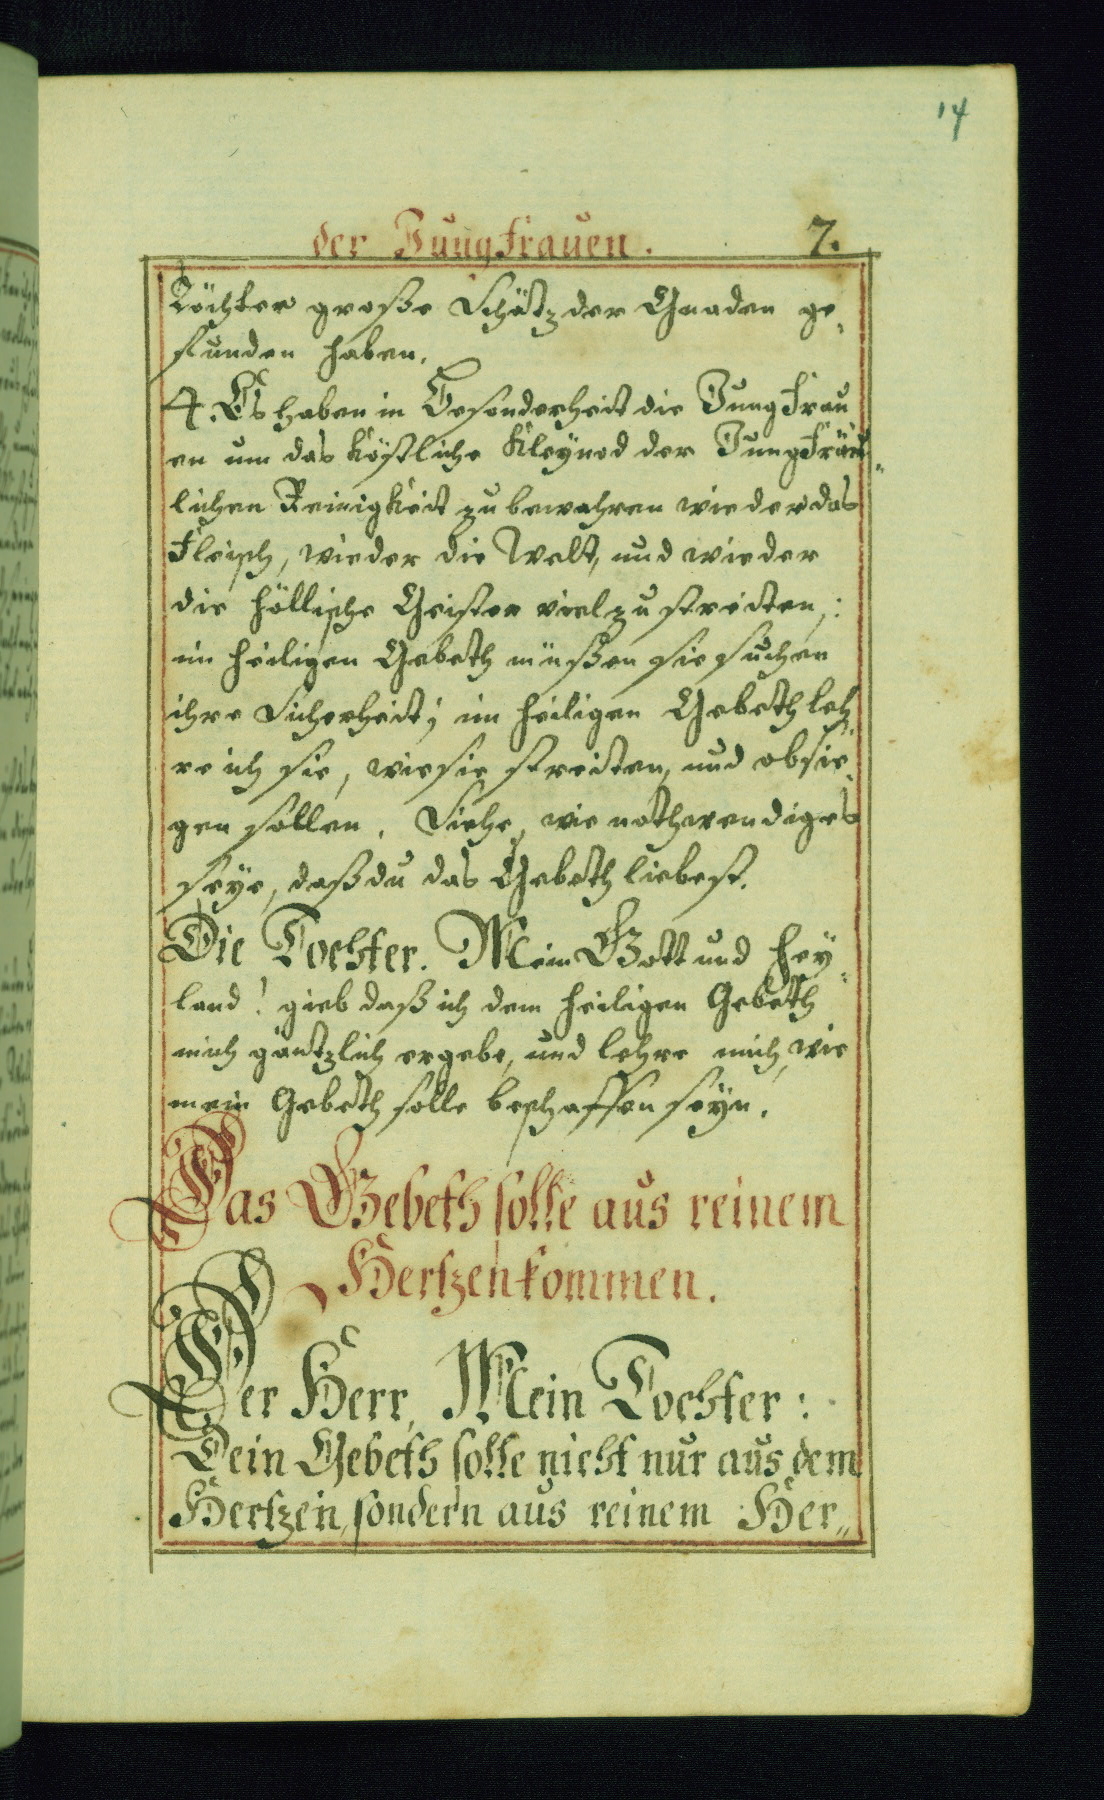 14
der Jungfrauen. 7.
Töchter große Schätz der Gnaden ge„
funden haben.
4. Es haben in Besonderheit die Jungfrau
en um das köstliche Kleynod der Jungfräu„
lichen Reinigkeit zu bewahren wieder das
Fleisch, wieder die Welt, und wieder
die höllische Geister viel zu streitten;:
im heiligen Gebeth müßen sie suchen
ihre Sicherheit; im heiligen Gebeth leh„
re ich sie, wie sie streitten, und obsie„
gen sollen. Siehe, wie nothwendig es
seye, daß du das Gebeth liebest.
Die Tochter. Mein Gott und Hey„
land! gieb daß ich dem heiligen Gebeth
mich gäntzlich ergebe, und lehre mich, wie
mein Gebeth solle beschaffen seyn.
Das Gebeth solle aus reinem
Hertzen kommen.
Der Herr, Mein Tochter:
Dein Gebeth solle nicht nur aus dem
Hertzen, sondern aus reinem Her„